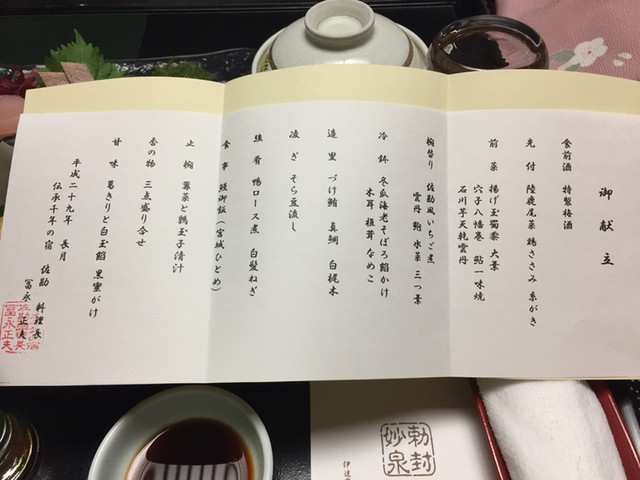 御献立
食前酒 特製梅酒
先付 陸鹿尾菜 鶏ささみ 糸がき
前菜 揚げ玉蜀黍 大葉
穴子八幡巻 鮎一味焼
石川芋天純雲丹
椀替り 佐勘風いちご煮
雲丹 鮑 水菜 三つ葉
冷鉢 冬瓜海老そぼろ餡かけ
木耳 椎茸 なめこ
造里 づけ鮪 真鯛 白梶木
凌ぎ そら豆流し
強肴 鴨ロース煮 白髪ねぎ
食事 鰻御飯（宮城ひとめ）
止椀 蓴菜と鶉玉子清汁
香の物 三点盛り合せ
甘味 葛きりと白玉餡 黒蜜がけ
平成二十九年 長月
伝承千年の宿 佐勘
料理長
冨永正夫
勅封
妙泉
伊達